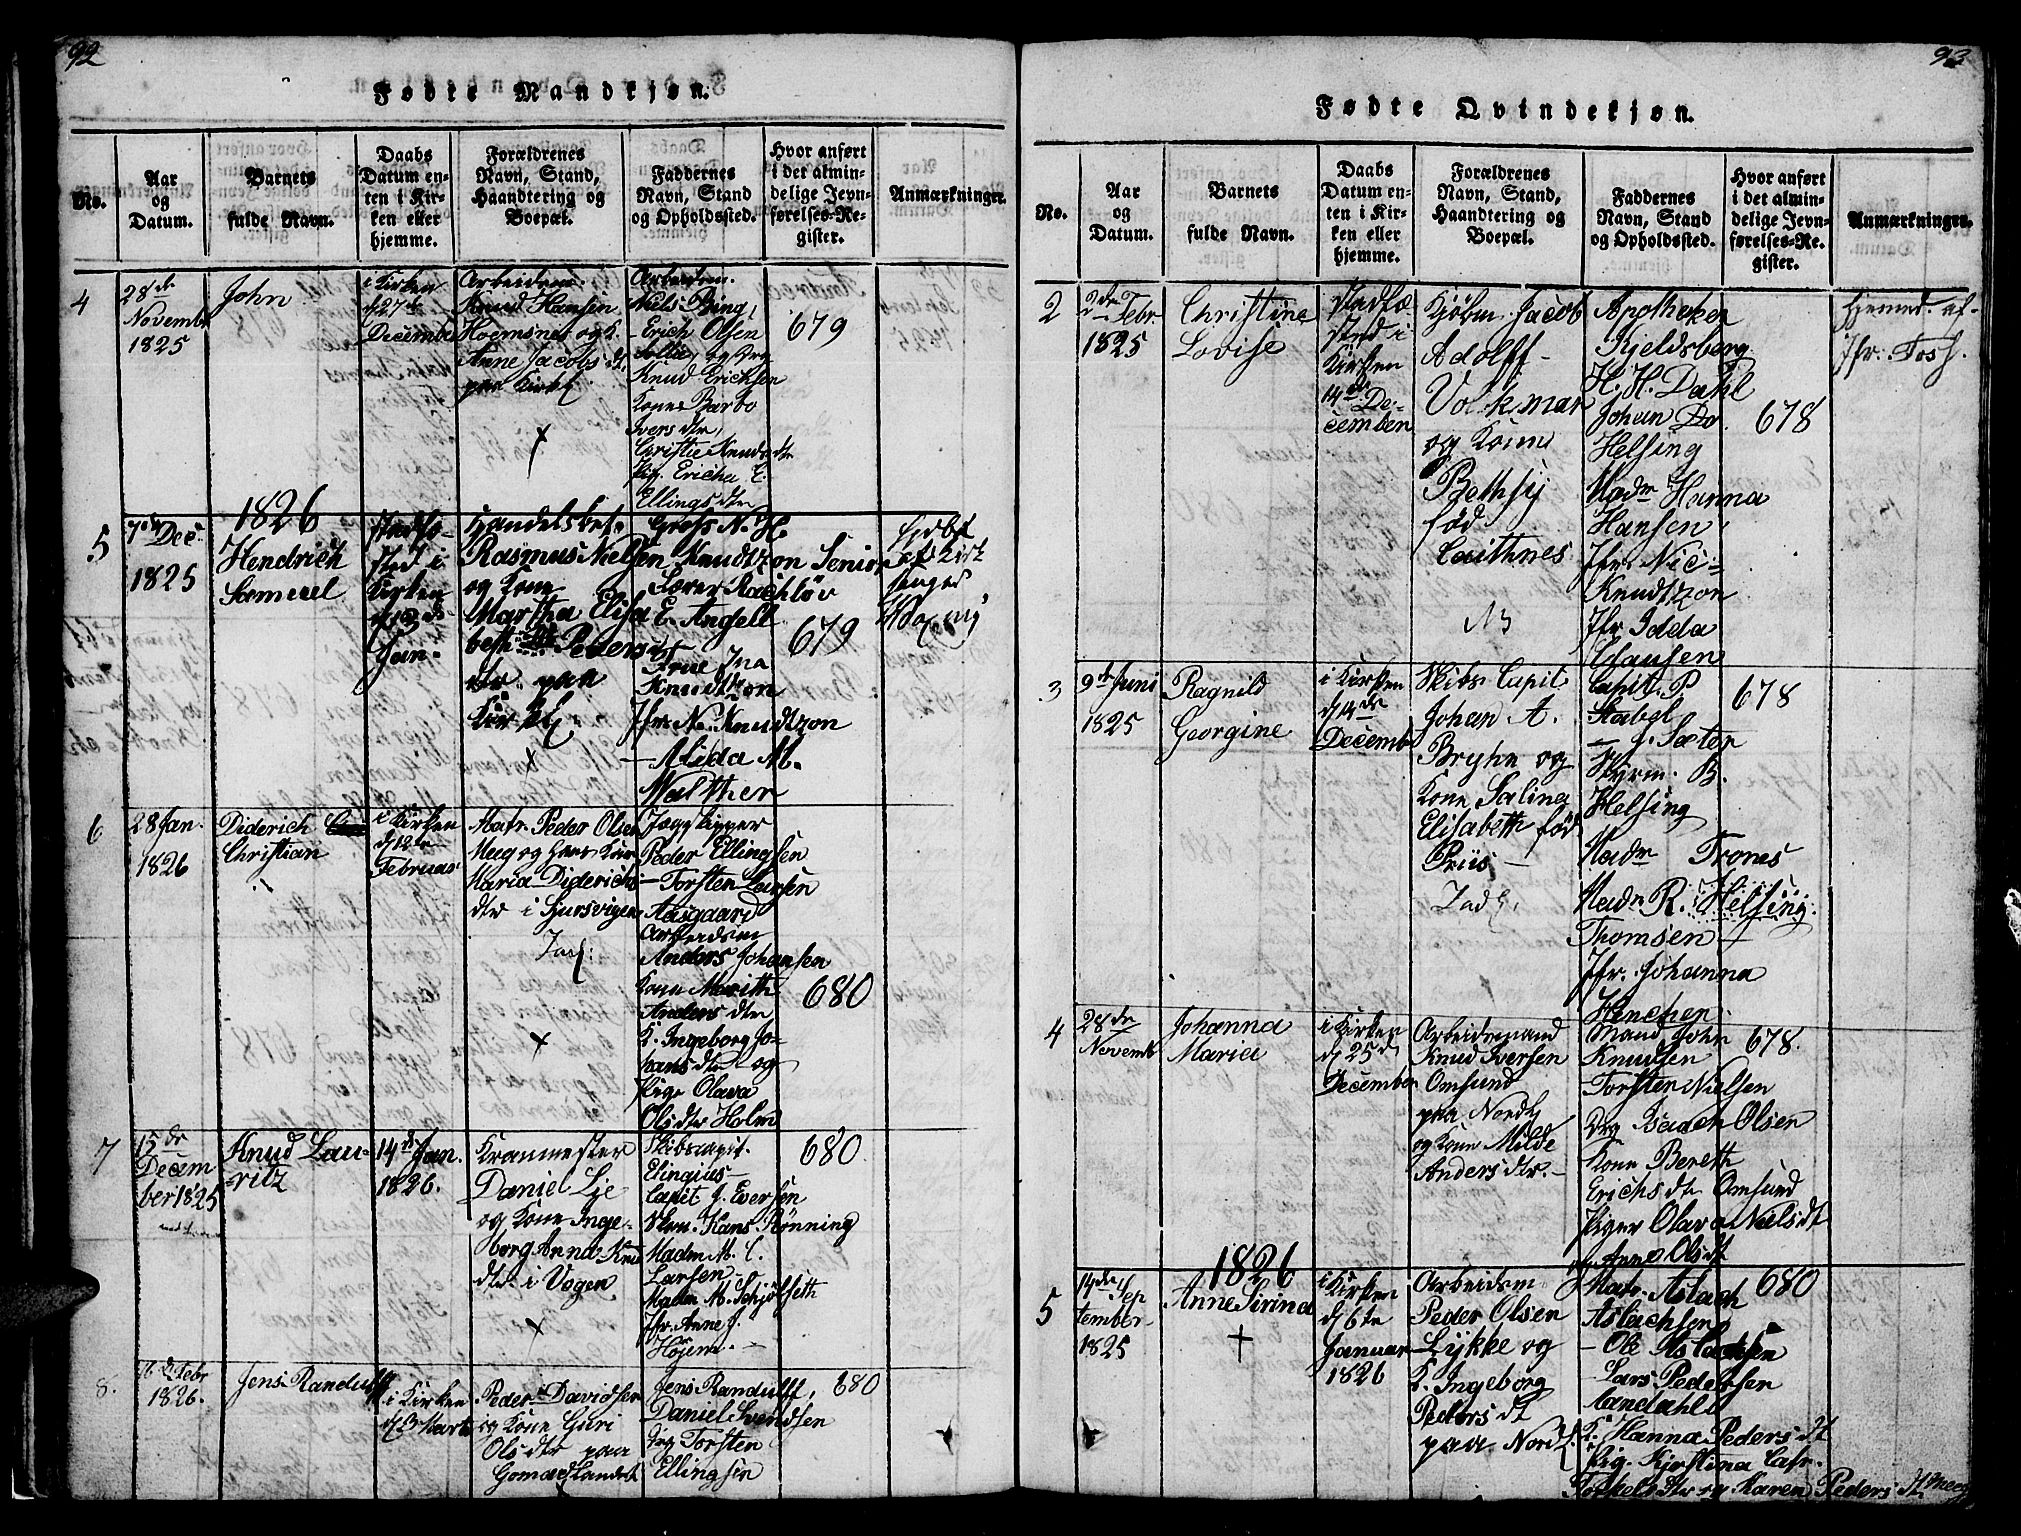 92
Fødte Mandkjøn.
No.
Aar
og
Datum.
Barnets
fulde Navn.
Daabs
Datum en-
ten i Kir-
ken eller
hjemme.
Forældrenes
Navn, Stand,
Haandtering og
Boepæl.
Faddernes
Navn, Stand
og Opholdssted.
Hvor anført
i det almin-
delige Jevn-
førelses-Re-
gister.
Anmærkninger.
4
28de
Novembr
1825
John
i Kirken
d 27de
Decembr
Arbeidsm.
Knud Hansen
og K.
Anne Jacobs dt.
paa
Arbeidsm.
Niels Bing,
Erich Olsen
Knud Ericksen
Kone Barbo
Ivers dtr,
Christie Knuds dtr
Pig. Ericha E.
Ellings dtr
679
1826
5
7de Dec.
1825
Hendrich
Samuel
sted i
Kirken
Jan.
Handelsbet.
Rasmus Nielsen
og Kone
Martha Elisa
beth Peders
dtr paa
Gross N. H.
Knudtzon Senior
E. Angell
Frue Ina
Knudtzon
Jfr. N. Knudtzon
— Alida M.
Walther
679
6
28 Jan.
1826
Diderich
Christian
i Kirken
d 12te
Februar
Matr. Peder Olsen
og hans Kone
Maria Diderichs
dtr i
Peder Ellingsen
— Torsten Larsen
Aasgaard
Arbeidsm
Anders Johansen
Kone Marith
Anders dtr
K. Ingeborg Jo-
hans dtr og
Pige Olava
Ols dtr Holm
680
7
15de
Decem
ber 1825
Knud Lau-
ritz
14de Jan.
1826.
Kranmester
Daniel Lie
og Kone Inge-
borg Anna Knud
dtr i Vogen
Skibscapit.
Capit J. Eversen
Hans Rønning
Madm M. C.
Larsen
Madm M. Schjølseth
Jfr. Anne J.
680
8.
16de Febr
1826.
Jens Randulff
i Kirken
Marts
Peder Davidsen
og Kone Guri
Ols dtr paa
Gomalandet
Jens Randulff,
Daniel Svendsen
Torsten
Ellingsen
680
93
Fødte Qvindekjøn.
No.
Aar
og
Datum.
Barnets
fulde Navn.
Daabs
Datum en-
ten i Kir-
ken eller
hjemme.
Forældrenes
Navn, Stand,
Haandtering og
Boepæl.
Faddernes
Navn, Stand
og Opholdssted.
Hvor anført
i det almin-
delige Jevn-
førelses-Re-
gister.
Anmærkninger.
2
2de Febr.
1825
Christine
Lovise
stadfæ
sted i
Kirken
14de De-
cember
Kjøbm. Jacob
Adolff
Volkmar
og Kone
Bethsy
fød
Caithnes
Apotheker
Kjeldsberg
H. H. Dahl
Johan Do
Helsing
Madm Hanna
Hansen
Jfr. Nic-
Knudtzon
Jfr Idda
Clausen
678
Hjemmed. af
Jfr.
3
9de Juni
1825
Ragnild
Georgine
i Kirken
d 14de
Decembr
Skibs Capit.
Johan A.
Bryhn og
Kone Salina
Elisabeth fød
Priis
Capit. P
Stabel
— J. Sæter
Styrm. B.
Helsing
Madm Troms
Madm R. Helsing
Thomsen
Jfr. Johanna
Hinchen
678
4
28de
Novemb
Johanna
Maria
i Kirken
d 25de
December
Arbeidsmand
Knud Iversen
Omsund
paa Nordl
og Kone Milde
Anders dtr.
Mand John
Knudsen
— Torsten Nielsen
Drg Baden Olsen
Kone Bereth
Erichs dt Omsund
Piger Olava Niels dt
og Anne Ols dt
678.
1826
5
14de Sep
tember
1825
Anne Sirina
i Kirken
d 6te
Januar
1826
Arbeidsm
Peder Olsen
Lykke og
K. Ingeborg
Peders dt
paa Nordl.
Matr. Aslach
Aslachsen
— Ole Aslachsen
— Lars Pedersen
Candahl
K. Hanna Peders dt
Pig. Kjerstina Cathr.
Torkels dtr og Karen Peders dt
680